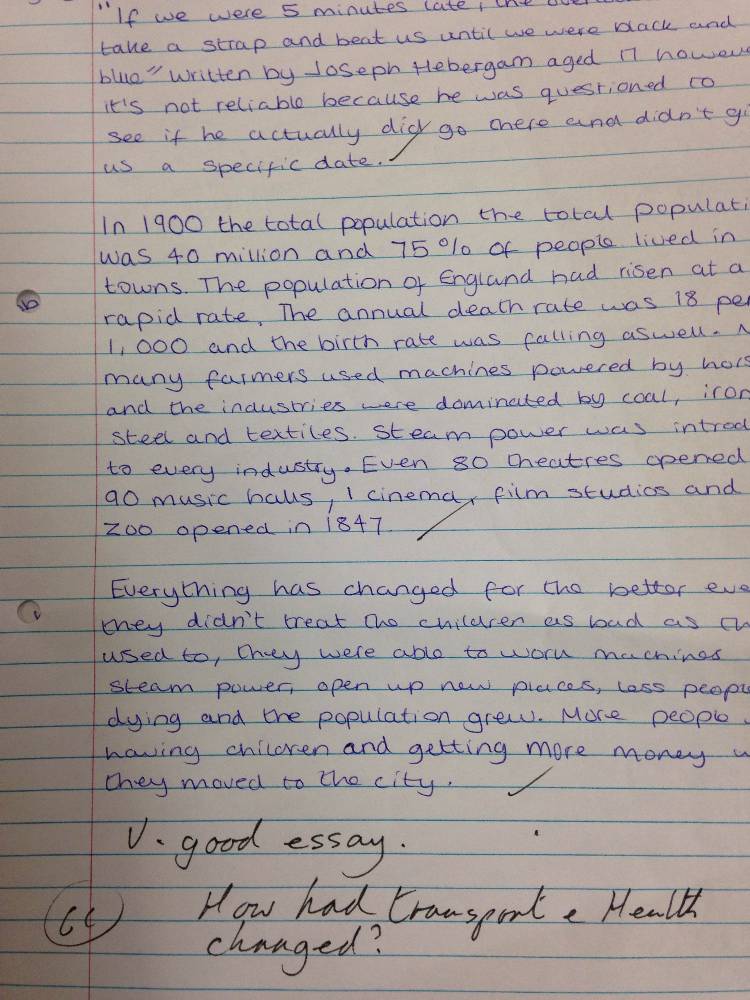 "If we were 5 minutes late, the
take a strap and beat us until we were black and
blue" written by Joseph Hebergam aged 17 howeve
it's not reliable because he was questioned to
see if he actually did go there and didn't gi
us a specific date.
In 1900 the total population the total populati
was 40 million and 75% of people lived in
towns. The population of England had risen at a
rapid rate. The annual death rate was 18 per
1,000 and the birth rate was falling aswell.
many farmers used machines powered by hors
and the industries were dominated by coal, iron
steel and textiles. Steam power was introd
to every industry. Even 80 theatres opened
90 music halls, 1 cinema, film studios and
zoo opened in 1847.
Everything has changed for the better eve
they didn't treat the children as bad as th
used to, they were able to work machines
steam power, open up new places, less peopl
dying and the population grew. More people
having children and getting more money w
they moved to the city.
V. good essay.
How had transport & Health
changed?